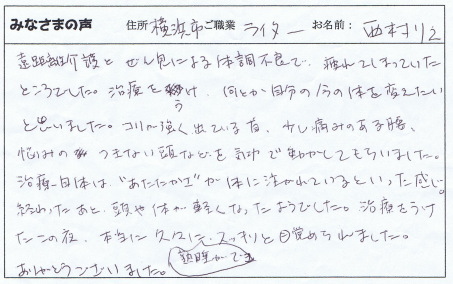 みなさまの声 住所 横浜市 ご職業 ライター お名前： 西村りえ
遠距離介護と ぜん息による体調不良で、疲れてしまっていた
ところでした。治療をうけ、何とか自分の今の体を変えたい
と思いました。コリが強く出ている首、少し痛みのある腰、
悩みのつきない頭などを気功で動かしてもらいました。
治療自体は、"あたたかさ"が体に注がれているといった感じ。
終わったあと、頭や体が軽くなったようでした。治療をうけ
たこの夜、本当に久々に、熟睡ができ スッキリと目覚められました。
ありがとうございました。